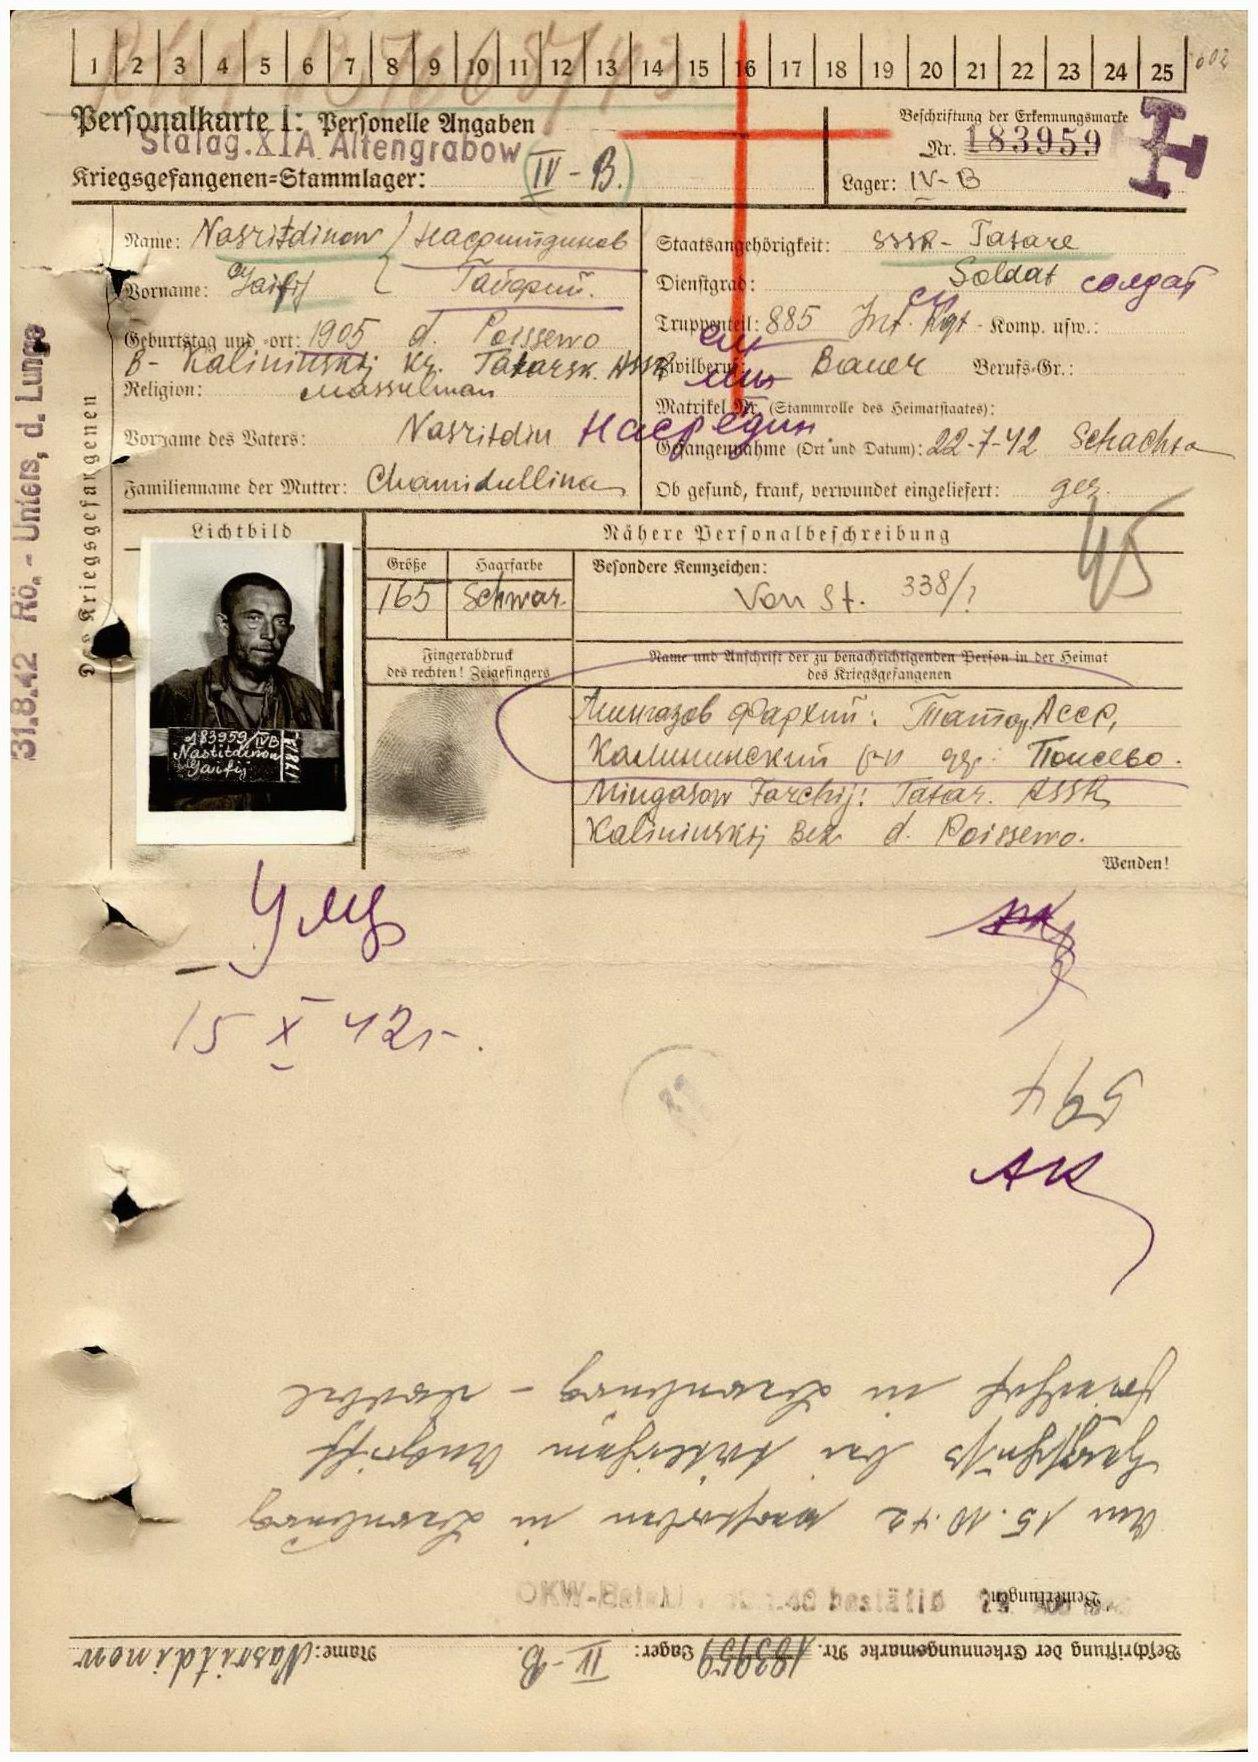 1 2 3 4 5 6 7 8 9 10 11 12 13 14 15 16 17 18 19 20 21 22 23 24 25
602
Personalkarte I: Personelle Angaben
Stalag.XIA Altengrabow
Kriegsgefangenen=Stammlager: IV-B.
Beschriftung der Erkennungsmarke
Nr. 183959
Lager: IV-B
Name: Nasritdinow / Насритдинов
Vorname: Gaifij Гайфий.
Geburtstag und -ort: 1905 d. Poissewo
B- Kalininskij Kr. Tatarsk. ASSR
Religion: Musselman
Vorname des Vaters: Nasritdin Насредин
Familienname der Mutter: Chamidullina
Staatsangehörigkeit: SSSR- Tatare
Dienstgrad: Soldat солдат
Truppenteil: 885 Inf. Rgt - Komp. usw.:
Zivilberuf: Bauer Berufs-Gr.:
Matrikel Nr. (Stammrolle des Heimatstaates):
Gefangennahme (Ort und Datum): 22-7-42 Schachta
Ob gesund, krank, verwundet eingeliefert: ges.
45
Des Kriegsgefangenen
31.8.42 Rö.- Unters, d. Lunge
Lichtbild
Nähere Personalbeschreibung
Größe
Haarfarbe
Besondere Kennzeichen:
165
Schwar.
Von St. 338/?
Fingerabdruck
des rechten! Zeigefingers
Name und Anschrift der zu benachrichtigenden Person in der Heimat
des Kriegsgefangenen
183959/IVB
Nastitdinow
Gaifij
Мингазов Фархий: Татар. АССР,
Калининский р-н дер. Поисево.
Mingasow Farchij: Tatar. ASSR
Kalininskij Bez. d. Poissewo.
Wenden!
Умер
15 X 42г.
594
АК
Name: Nasritdinow Lager: IV-B. Beschriftung der Erkennungsmarke Nr. 183959
Bemerkungen:
bestätig
Am 15.10.42 verstorben in